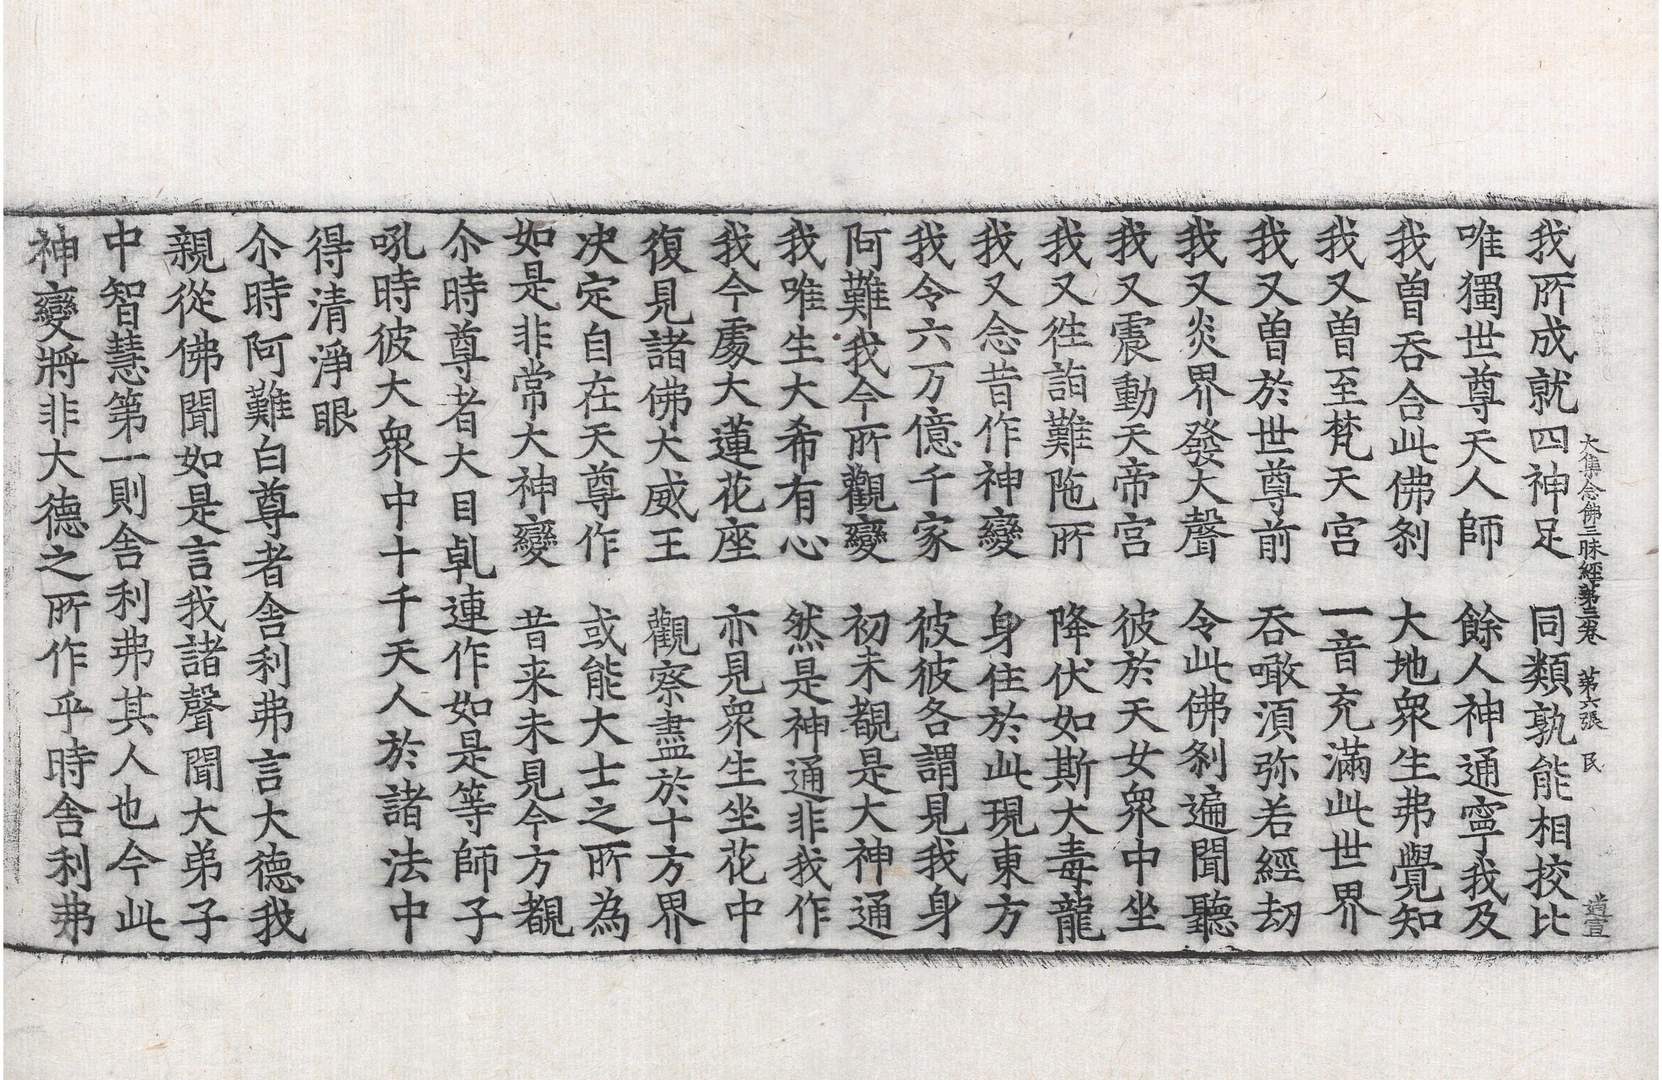 大集念佛三昧經第三卷 第六張 民
我所成就四神足 同類孰能相挍比
唯獨世尊天人師 餘人神通寧我及
我曾吞合此佛刹 大地衆生弗覺知
我又曾至梵天宮 一音充滿此世界
我又曾於世尊前 吞噉湏弥若經劫
我又炎界發大聲 令此佛刹遍聞聽
我又震動天帝宮 彼於天女衆中坐
我又徃詣難陁所 降伏如斯大毒龍
我又念昔作神變 身住於此現東方
我令六万億千家 彼彼各謂見我身
阿難我今所觀變 初未覩是大神通
我唯生大希有心 然是神通非我作
我今處大蓮花座 亦見衆生坐花中
復見諸佛大威王 觀察盡於十方界
决定自在天尊作 或能大士之所為
如是非常大神變 昔来未見今方覩
尒時尊者大目乹連作如是等師子
吼時彼大衆中十千天人於諸法中
得清淨眼
尒時阿難白尊者舎利弗言大德我
親從佛聞如是言我諸聲聞大弟子
中智慧第一則舎利弗其人也今此
神變將非大德之所作乎時舎利弗